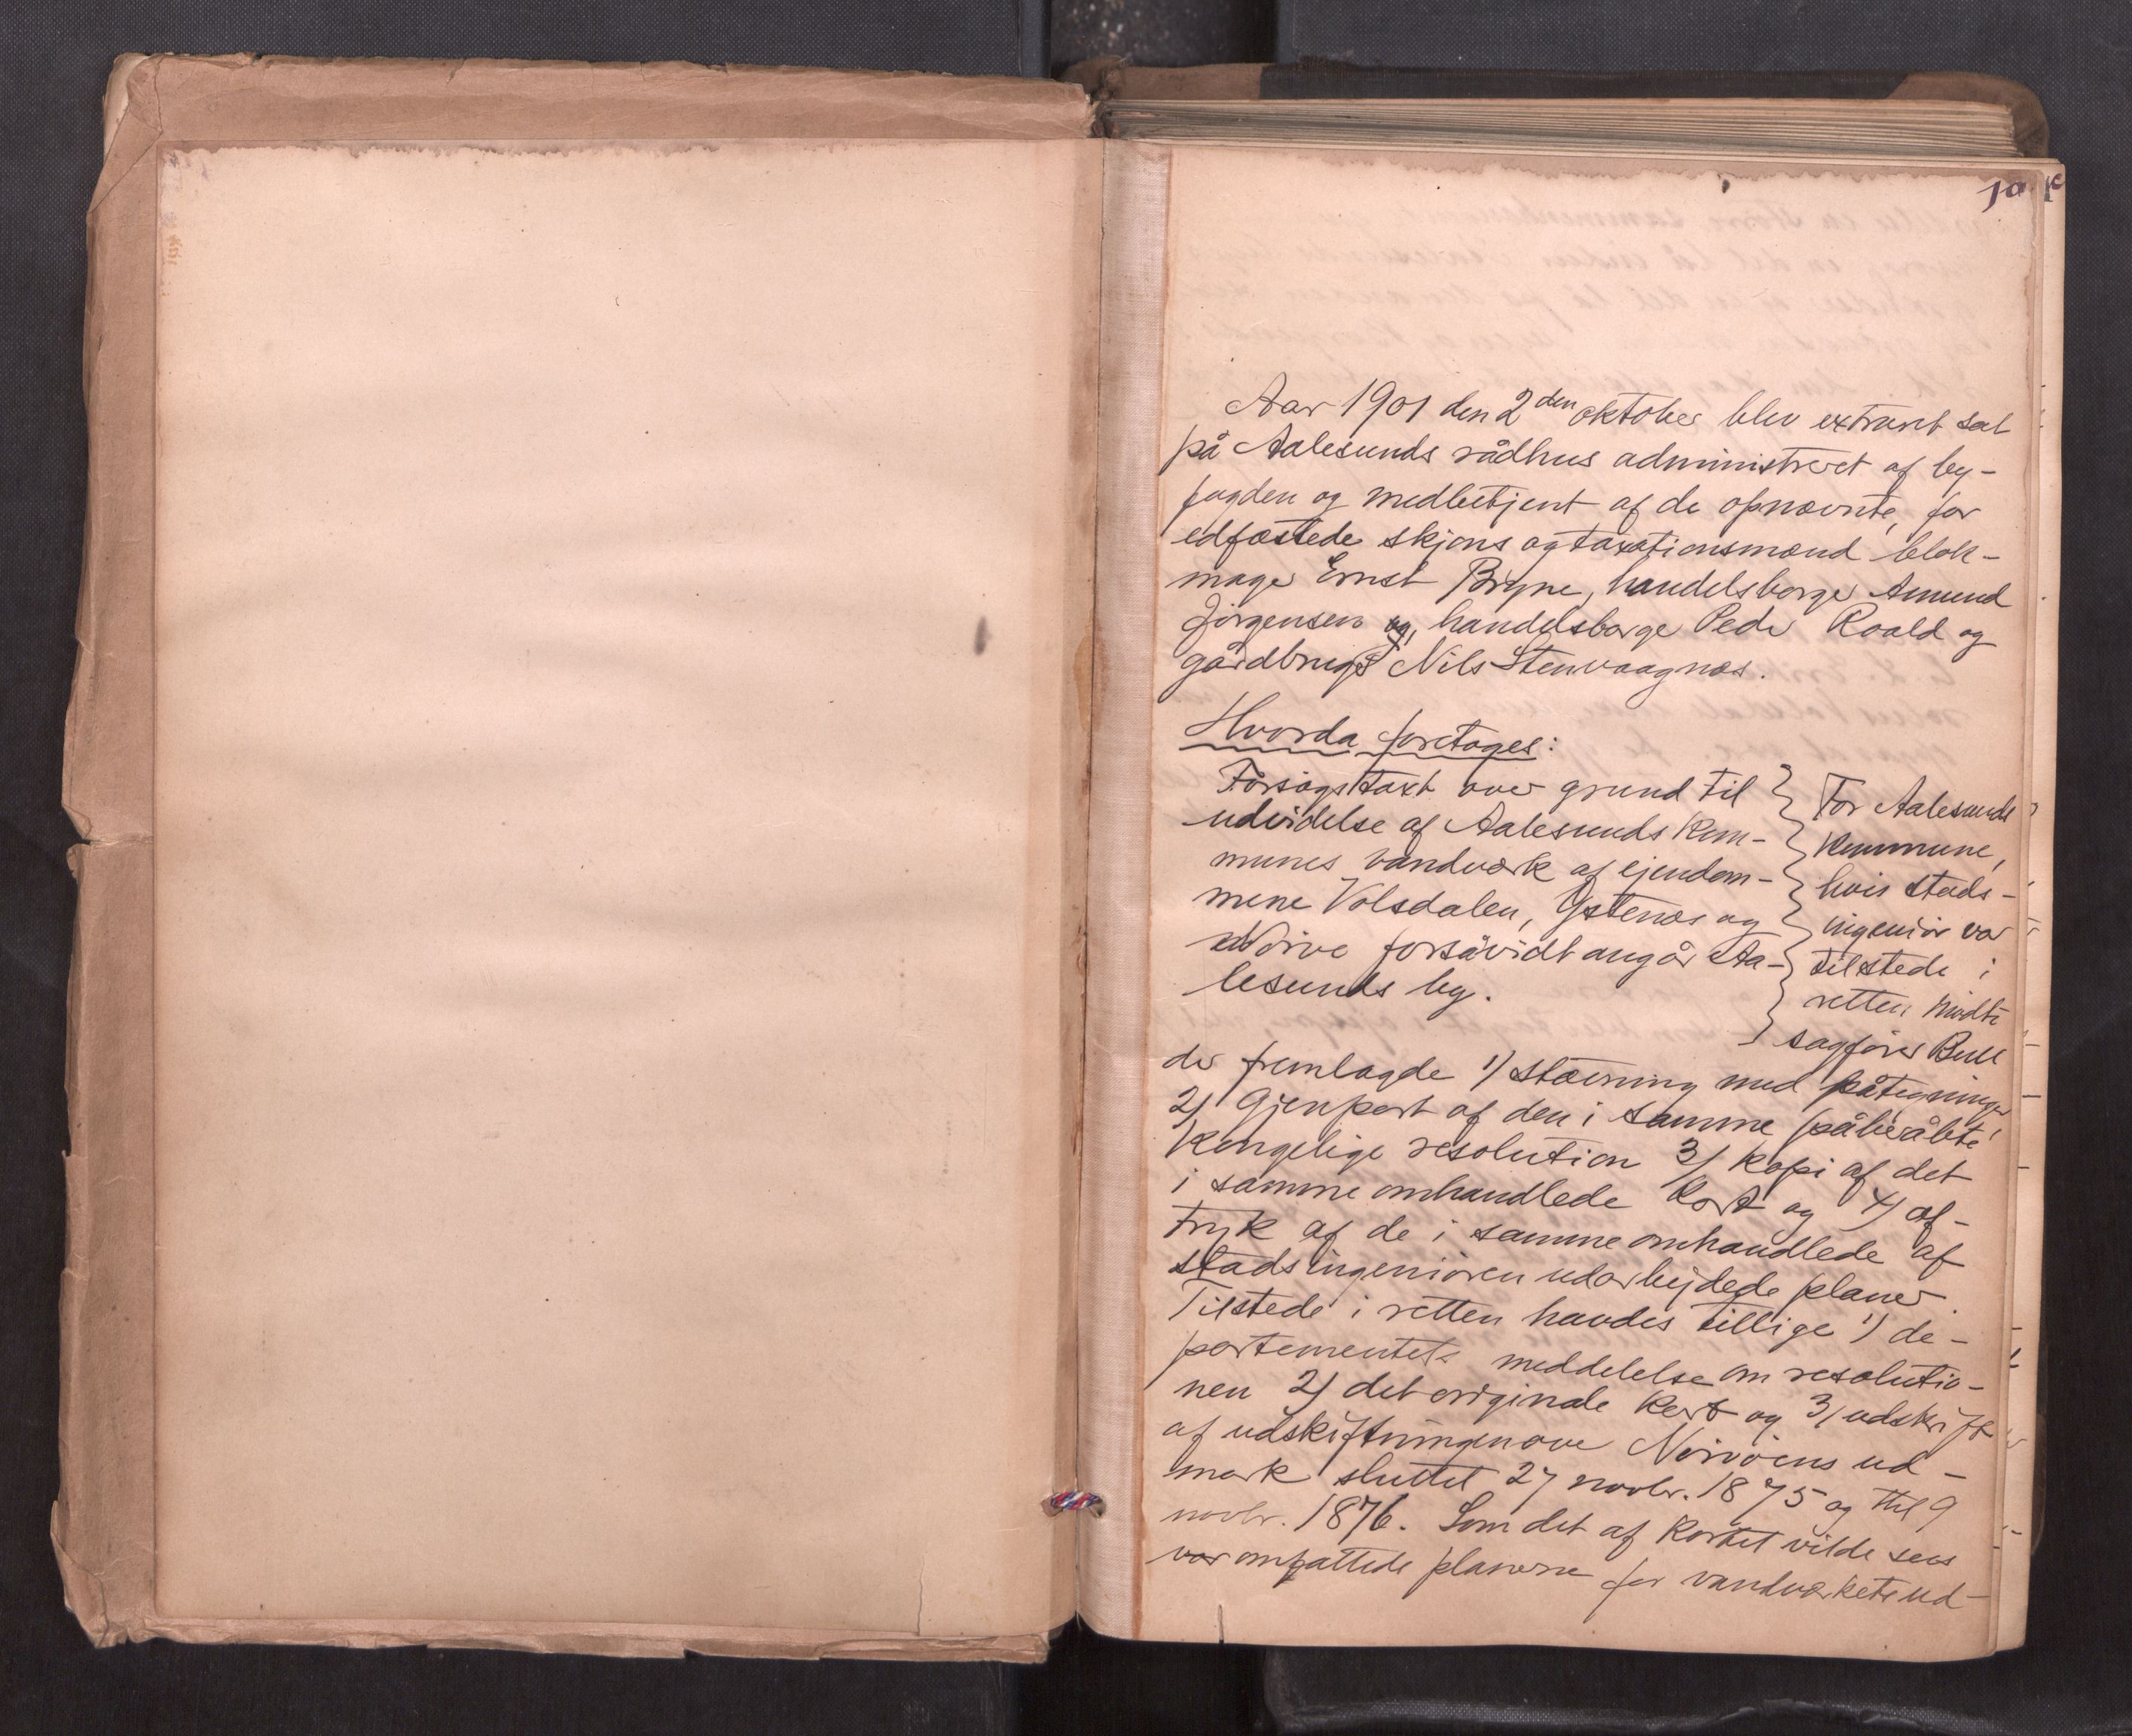 1a
Aar 1901 den 2den oktober blev extraret sat
på Aalesunds rådhus administreret af by-
fogden og medbetjent af de opnævnte, før
edfæstede skjøns og taxationsmænd blok-
mager Ernst Bryne, handelsborger Amund
Jørgensen og, handelsborger Peder Roald og
gårdbruger Nils Stenvaagnæs.
Hvorda foretoges:
Forsøgstaxt over grund til
udvidelse af Aalesunds kom-
munes vandværk af ejendom-
mene Volsdalen, Ystenæs og
Nørve forsåvidt angår Aa-
lesunds by.
For Aalesunds
kommune,
hvis stads-
ingeniør var
tilstede i
retten mødte
sagfører Bull
der fremlagde 1) stævning med påtegninger,
2) Gjenpart af den i samme påberåbte
kongelige resolution 3) kopi af det
i samme omhandlede kort og 4) af-
tryk af de i samme omhandlede af
stadsingeniøren udarbejdede planer.
Tilstede i retten havdes tillige 1) de-
partementets meddelelse om resolutio-
nen 2) det originale kort og 3) udskrift
af udskiftningen over Nørvøens ud-
mark sluttet 27 novbr. 1875 og thl 9
novbr. 1876. Som det af kortet vilde sees
var omfattede planerne for vandværkets ud-